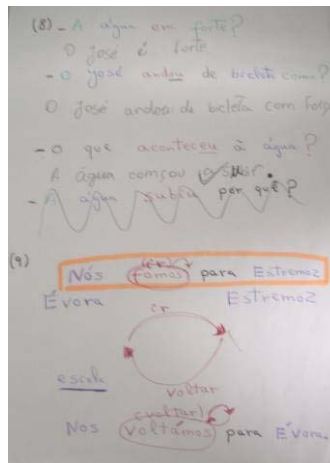 (8) - A água em forte?
O josé é forte.
- O josé andou de bicleta como?
O josé andou de bicleta com força
- O que aconteceu à água?
A água comsou a subir.
- A água subiu por quê?
(9)
(ir)
Nós fomos para Estremoz
Évora Estremoz
ir
escola
voltar
(voltar)
Nós voltámos para Évora.